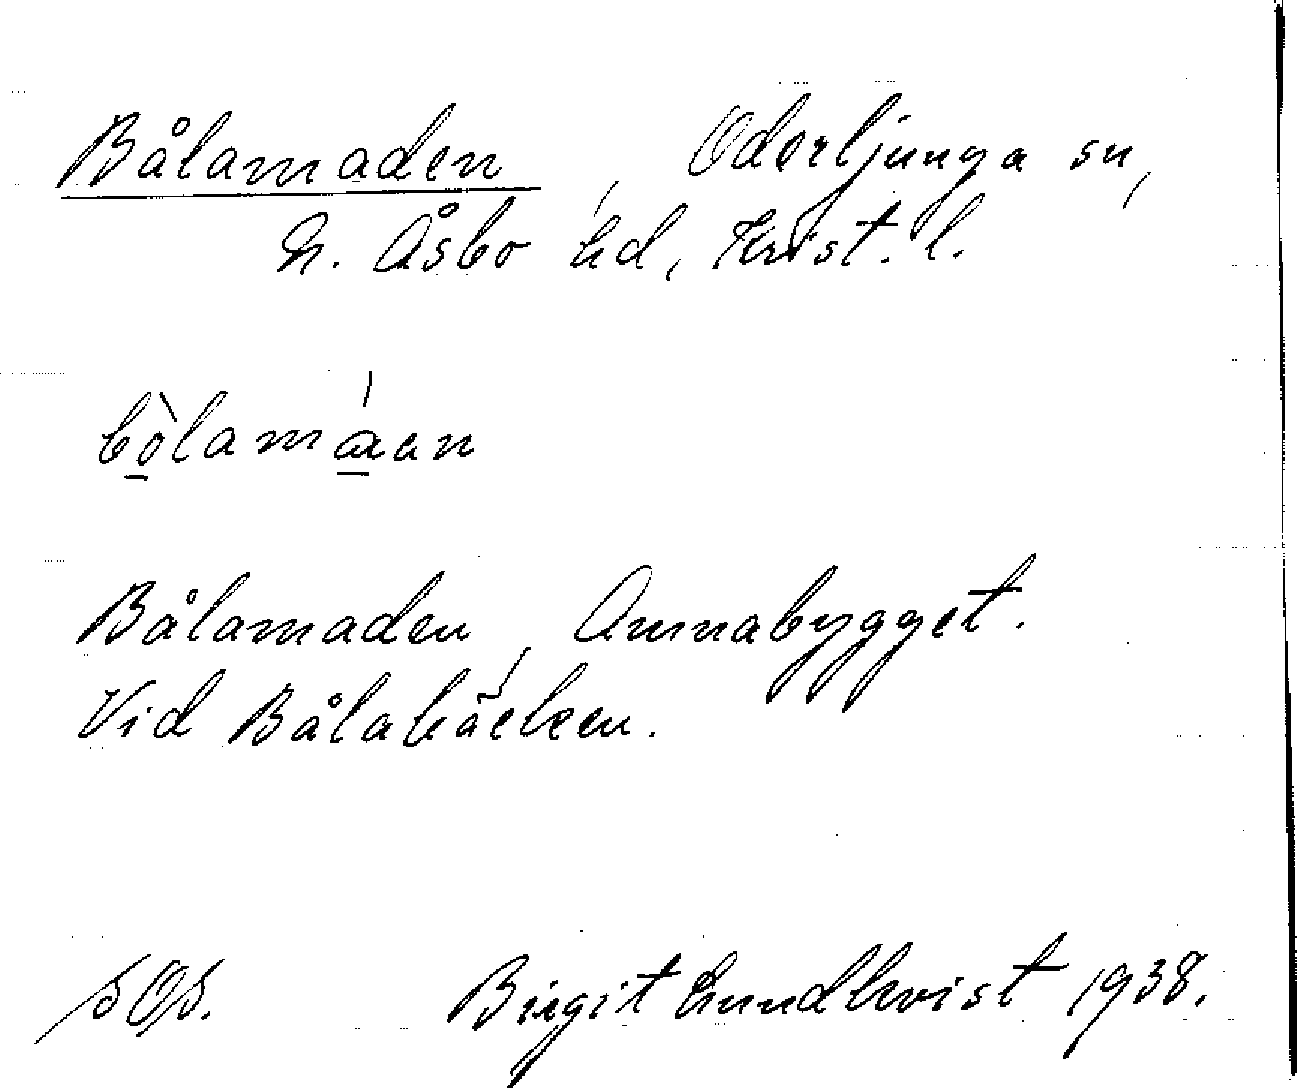 Bålamaden, Oderljunga sn,
N. Åsbo hd, Krist. l.
bòlamáan
Bålamaden, Annabygget.
Vid Bålabäcken.
SOS. Birgit Lundkvist 1938.